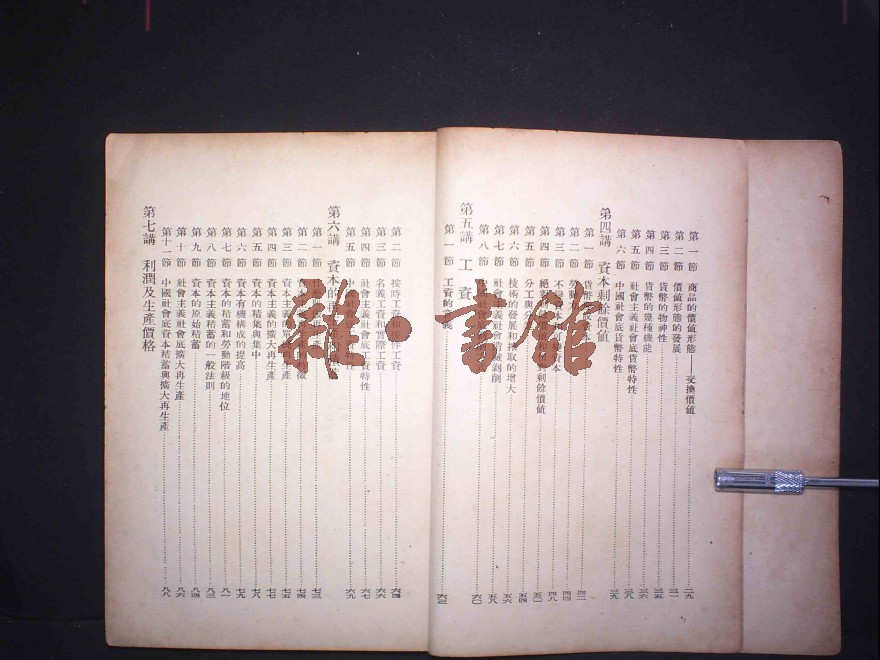 第一節 商品的價値形態——交換價値 二九
第二節 價値形態的發展 三一
第三節 貨幣的物神性 三五
第四節 貨幣的幾種機能 三六
第五節 社會主義社會底貨幣特性 三八
第六節 中國社會底貨幣特性 三九
第四講 資本剩餘價値
第一節 貨幣 四二
第二節 勞動 四四
第三節 不變資本 資本 四八
第四節 絕 剩餘價値 五〇
第五節 分工與 五四
第六節 技術的發展和搾取的增大 五六
第七節 社會 剝削 五八
第八節 六〇
第五講 工資
第一節 工資的 義 六三
第二節 按時工資和 工資 六四
第三節 名義工資和實際工資 六六
第四節 社會主義社會底工資特性 六七
第五節 中國社 性 六九
第六講 資本的再
第一節 七三
第二節 資本 七四
第三節 資本主義的單 生產 七五
第四節 資本主義的擴大再生產 七七
第五節 資本的積集與集中 七八
第六節 資本有機構成的提高 七九
第七節 資本的積蓄和勞動階級的地位 八一
第八節 資本主義積蓄的一般法則 八三
第九節 資本的原始積蓄 八四
第十節 社會主義社會底擴大再生產 八六
第十一節 中國社會底資本積蓄與擴大再生產 八八
第七講 利潤及生產價格
雜·書館